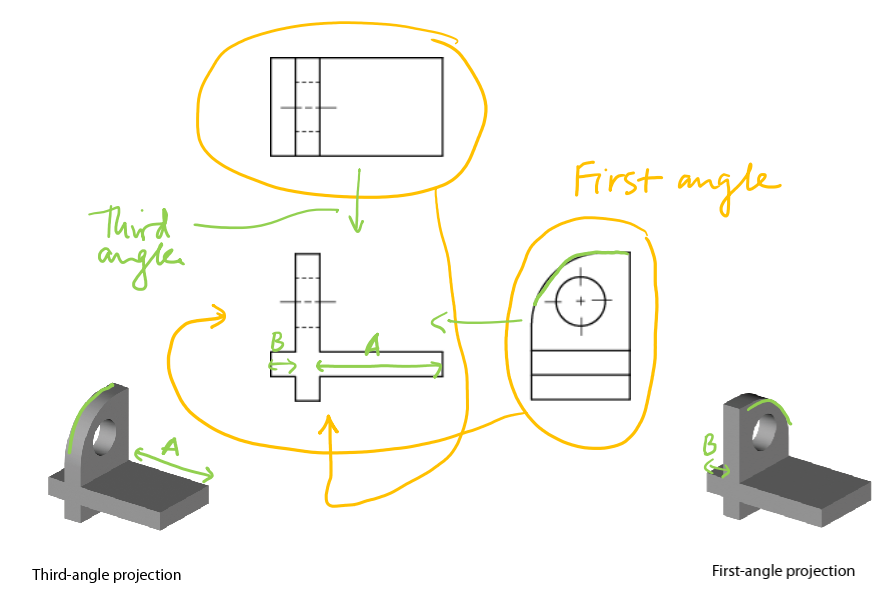 First angle
Third
angle
B
A
A
B
Third-angle projection
First-angle projection